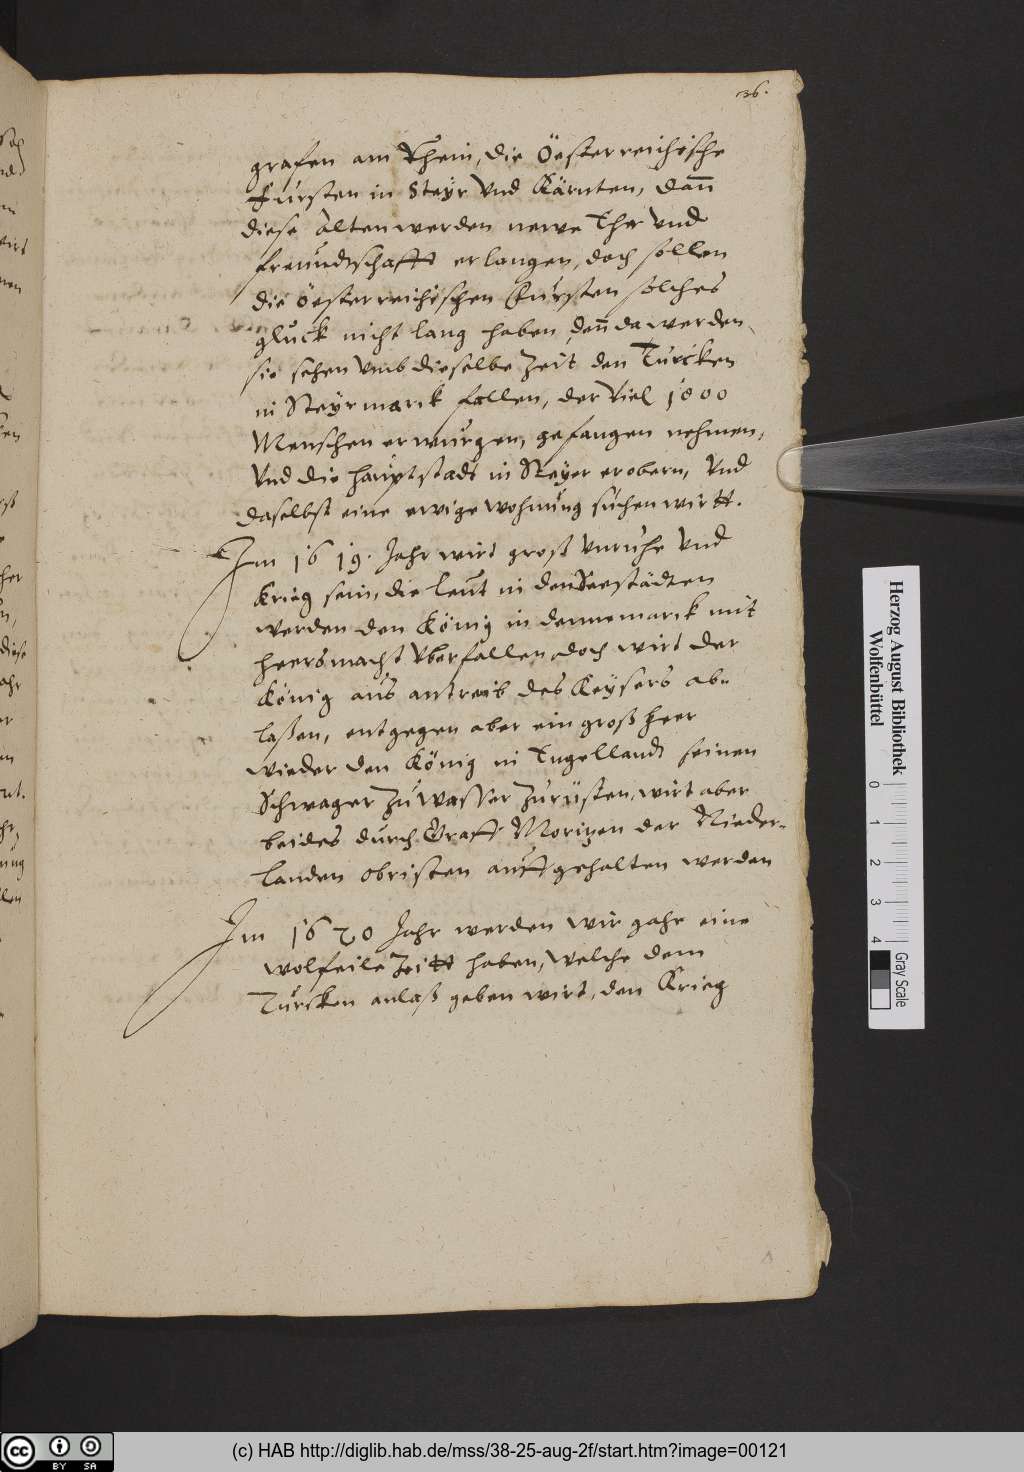 36.
grafen am Rhein, die Öesterreichische
Fürsten in Steyr Vnd Kärnten, dann
diese alten werden newe Ehr Vnd
freundtschafft erlangen, doch sollen
die öesterreichischen Fürsten solches
gluck nicht lang haben, denn da werden
sie sehen Vmb dieselbe Zeit den Türcken
in Steyrmarck fallen, der Viel 1000
Menschen erwürgen, gefangen nehmen,
Vnd die hauptstadt in Steyer erobern, Vnd
daselbst eine ewige wohnung suchen wirtt.
Im 1619. Jahr wirt groß Vnruhe Vnd
Krieg sein, die leut in den Seestädten
werden den König in dennemarck mit
heersmacht Vberfallen doch wirt der
König aus antreib des Keysers ab-
laßen, entgegen aber ein groß heer
wieder den König in Engellandt seinen
Schwager Zu Wasser Zurüsten, wirt aber
beides durch Graff Moritzen der Nieder-
landen obristen auffgehalten werden
Im 1620 Jahr werden wir gahr eine
wolfeile Zeitt haben, Welche dem
Türcken anlaß geben wirt, den Krieg
Herzog August Bibliothek
Wolfenbüttel
0 1 2 3 4
Gray Scale
cc BY SA
(c) HAB http://diglib.hab.de/mss/38-25-aug-2f/start.htm?image=00121